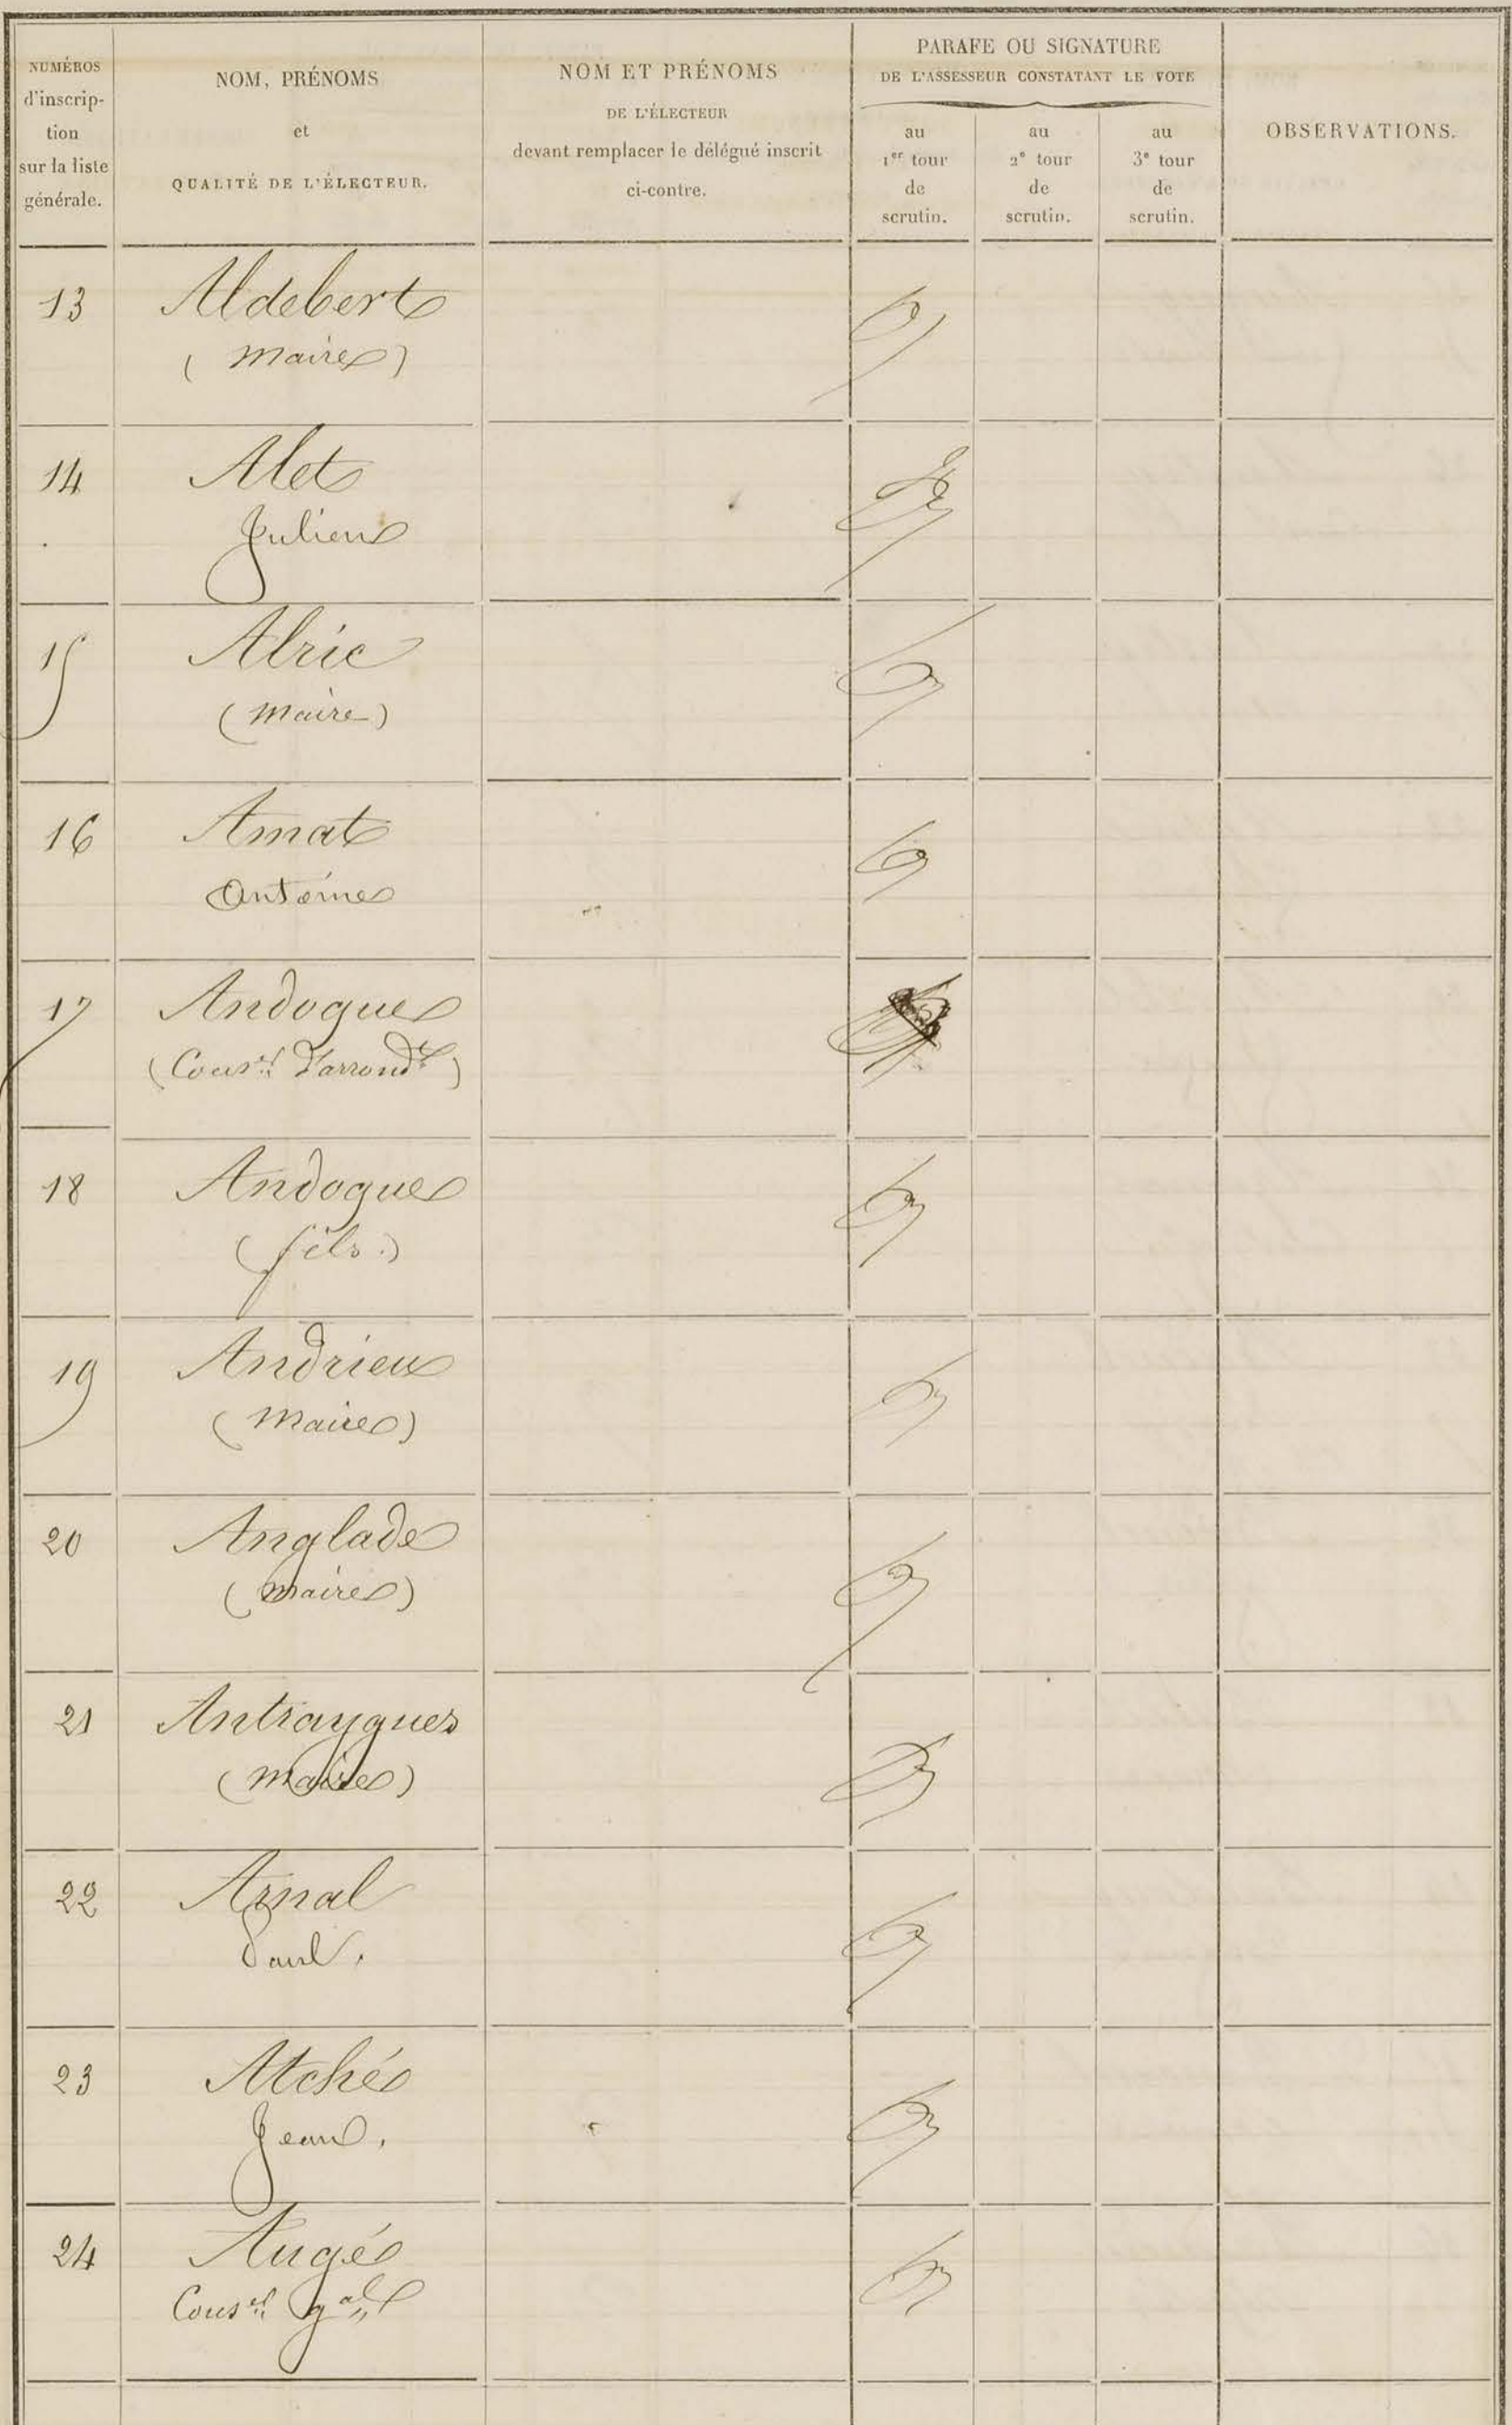 NUMÉROS
d'inscrip-
tion
sur la liste
générale.
NOM, PRÉNOMS
et
QUALITÉ DE L'ÉLECTEUR.
NOM ET PRÉNOMS
DE L'ÉLECTEUR
devant remplacer le délégué inscrit
ci-contre.
PARAFE OU SIGNATURE
DE L'ASSESSEUR CONSTATANT LE VOTE
au
1er tour
de
scrutin.
au
2e tour
de
scrutin.
au
3e tour
de
scrutin.
OBSERVATIONS.
13 Aldebert
(maire)
14 Alet
Julien
15 Alric
(maire)
16 Amat
Antoine
17 Andoque
(Conser d'arrondt)
18 Andoque
(fils.)
19 Andrieu
(maire)
20 Anglade
(maire)
21 Antraygues
(maire)
22 Arnal
Paul.
23 Atché
Jean.
24 Augé
Conser gal